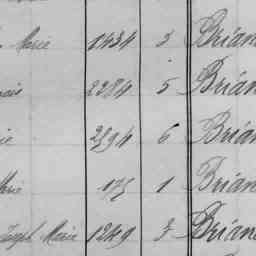 Marie 1434 3 Brian
2284 5 Brian
2594 6 Brian
175 1 Brian
Joseph Marie 1249 3 Brian